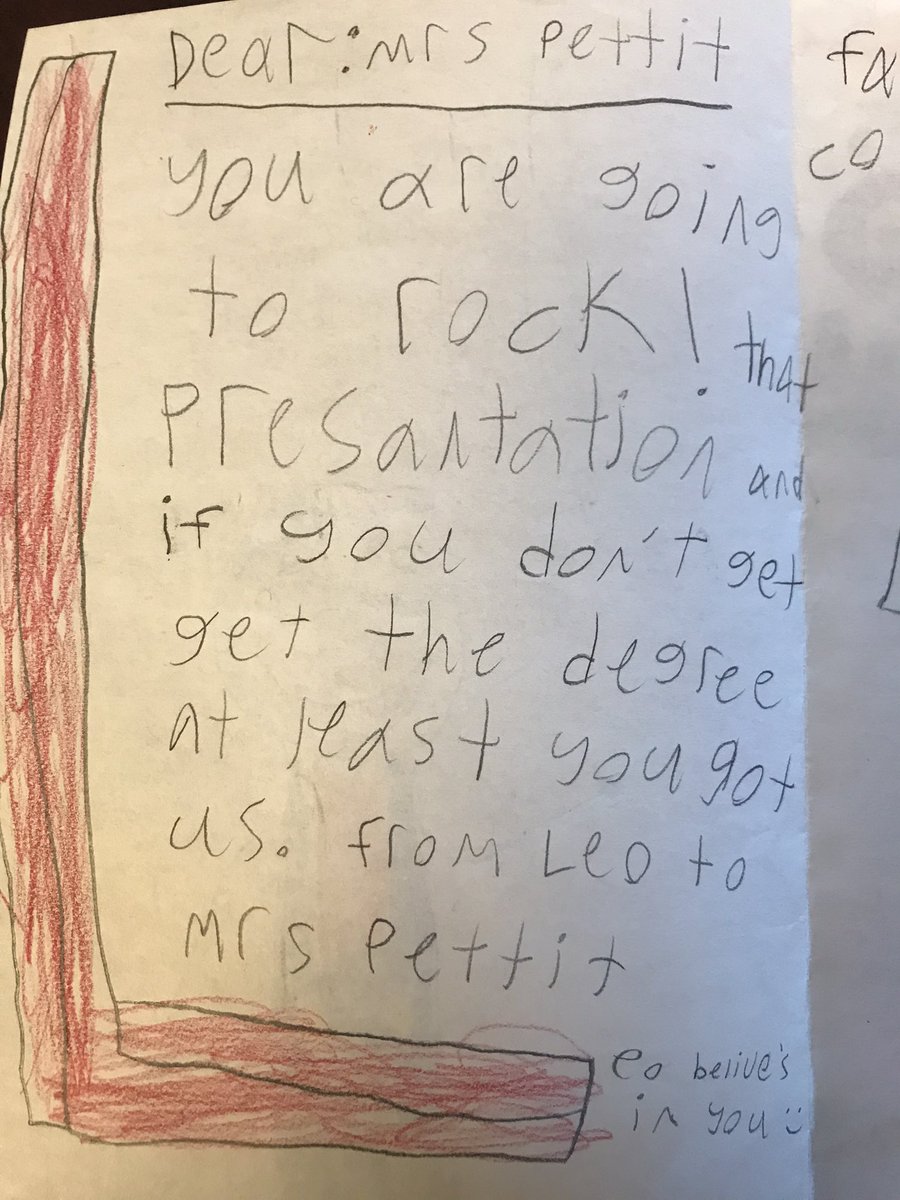 Dear: mrs pettit
you are going
to rock! that
presantation and
if you don't get
get the degree
at least you got
us. from Leo to
mrs pettit
Leo belive's
in you :)
fa
co